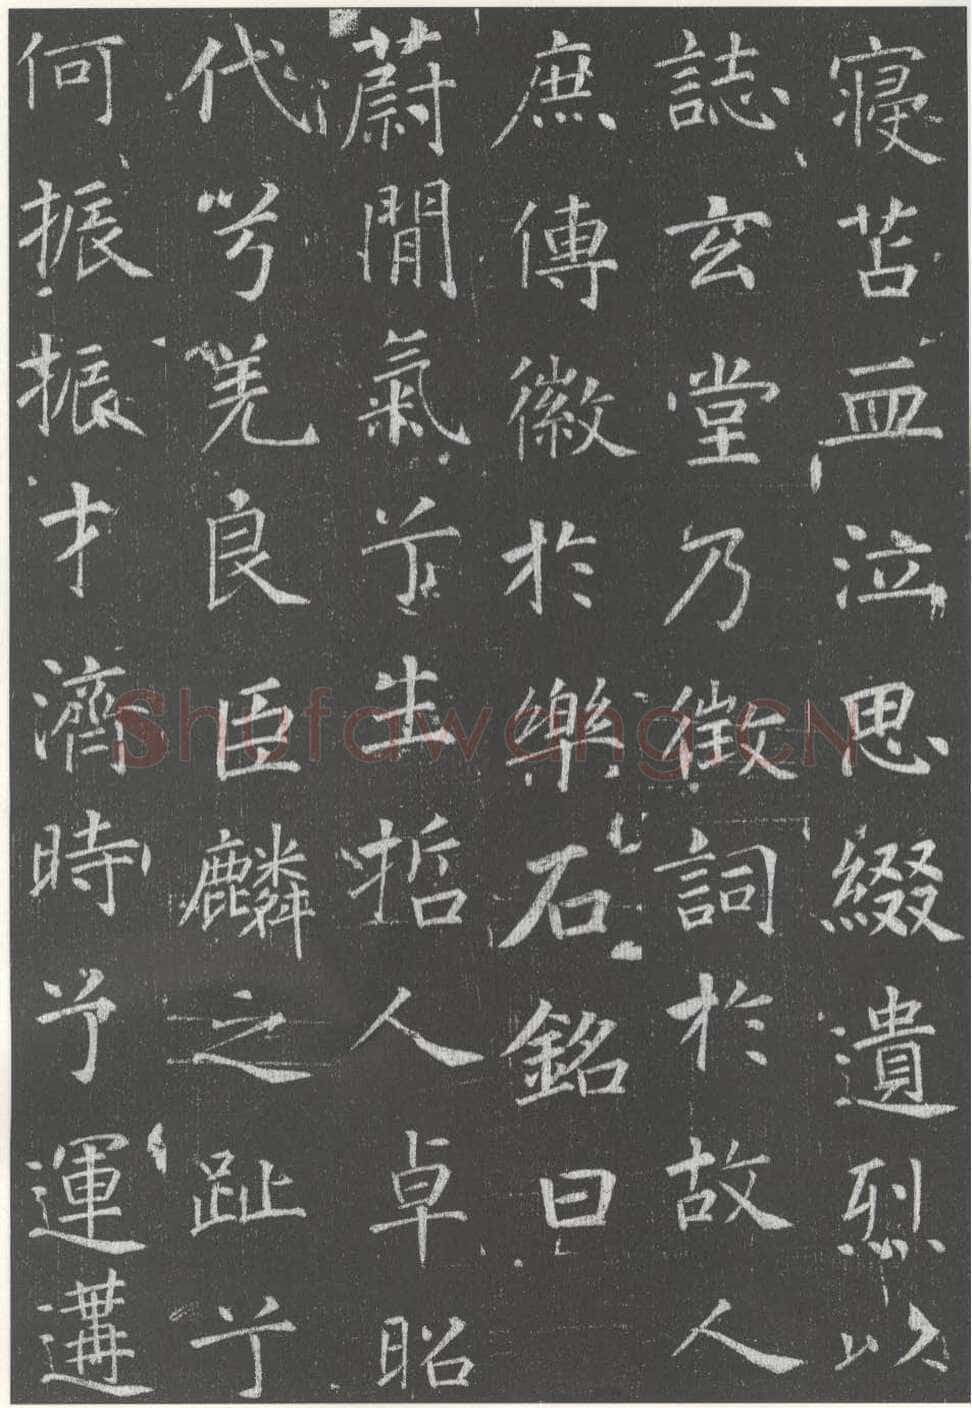 寢苫血泣思綴遺烈以
誌玄堂乃徵詞於故人
庶傳徽於樂石銘曰
蔚閒氣兮生哲人卓昭
代兮羌良臣麟之趾兮
何振振才濟時兮運遘
Shufawang.CN